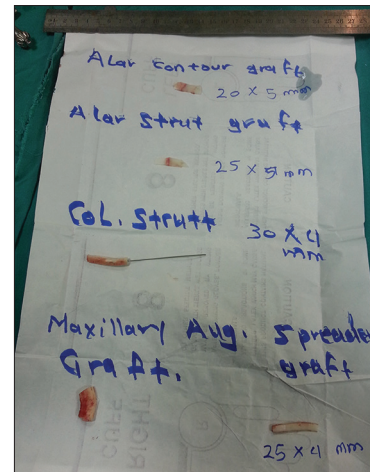 Alar contour graft
20 x 5 mm
Alar strut graft
25 x 5 mm
Col. strutt
30 x 4
mm
Maxillary Aug.
Graft.
Spreader
graft
25 x 4 mm
CUFF
RIGHT